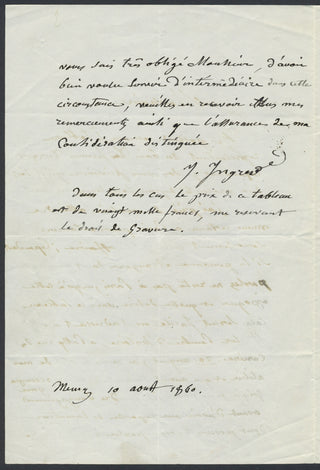 vous suis très obligé Monsieur, d'avoir
bien voulu servir d'intermédiaire dans cette
circonstance, veuillez en recevoir tous mes
remerciements ainsi que l'assurance de ma
Considération distinguée
J. Ingres
Dans tous les cas le prix de ce tableau
est de vingt mille francs, me reservant
le droit de Gravure.
Meung 10 aout 1860.